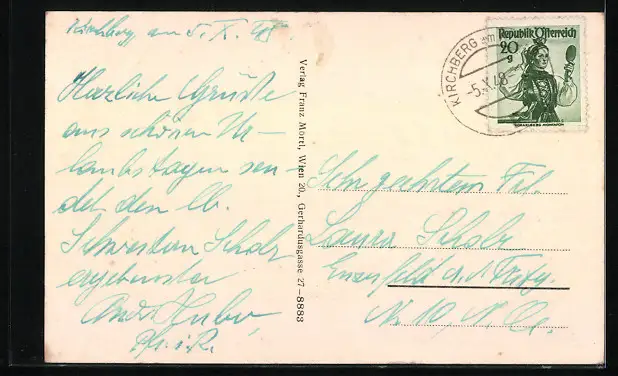 Kirchberg am 5. X. 48
Herzliche Grüsse
aus schönen Ur-
laubstagen sen-
det den lb.
Schwestern Scholz
ergebenster
Andr. Huber,
Pf. i. R.
Verlag Franz Mörtl, Wien 20., Gerhardusgasse 27—8883
KIRCHBERG am
-5.X.48
Republik Österreich
20
g
Sehr geehrtem Frl.
Laura Scholz
Enzesfeld a. d. Triestg.
Nr. 10, N. Ö.